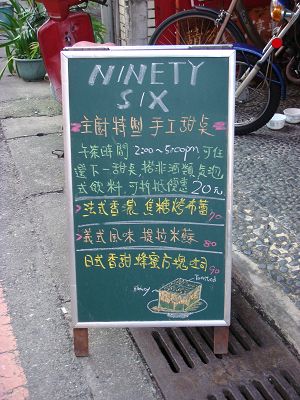 NINETY
SIX
主廚特製 手工甜点
午茶時間 2:00~5:00pm, 可任
選下一甜点, 搭非酒類
式飲料, 可折抵優惠20元
法式香濃 焦糖烤布蕾 70
義式風味 提拉米蘇 80
日式香甜 蜂蜜方塊吐司 90
Honey
Toasted